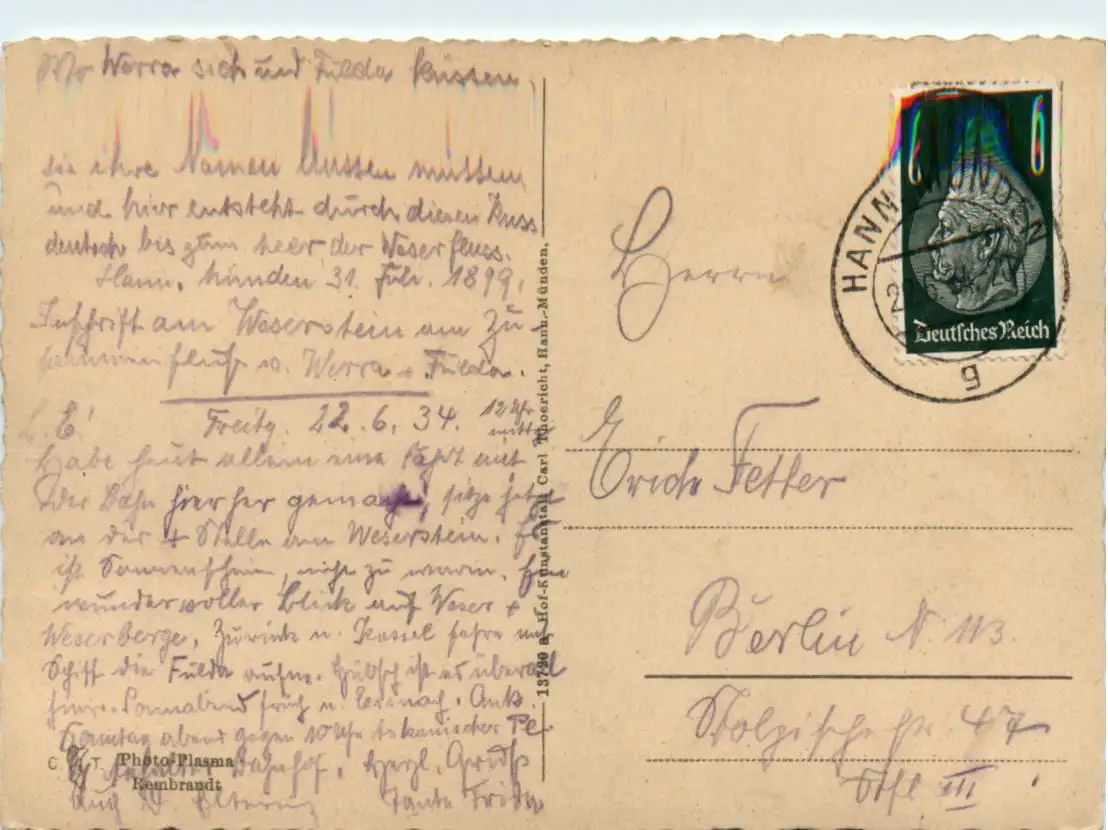 Wo Werra sich und Fulda küssen
sie ihre Namen büssen müssen
und hier entsteht durch diesen Kuss
deutsch bis zum Meer der Weserfluss.
Hann. Münden 31. Juli. 1899.
Inschrift am Weserstein am Zu-
sammenfluß v. Werra + Fulda.
L. E! Freitg. 22. 6. 34. 12 Uhr
mittag
Habe heut allein eine Fahrt mit
der Bahn hierher gemacht, sitze jetzt
an der + Stelle am Weserstein. Es
ist Sonnenschein, nicht zu warm. Ein
wundervoller Blick auf Weser +
Weserberge. Zurück n. Kassel fahre mit
Schiff die Fulda aufw. Hübsch ist es überall
hier. Sonnabend früh n. Eisenach. Ank.
Sonntag abend gegen 10 Uhr
Anhalter Bahnhof. Herzl. Grüße
auch Eltern Tante Frida
C. T. Photo-Plasma
Rembrandt
13720 a Hof-Kunstanstalt Carl Thoericht, Hann.-Münden.
HANN. MÜNDEN
g
6 6
Deutsches Reich
Herrn
Erich Fetter
Berlin N 113.
Stolpischestr. 47
Stfl III